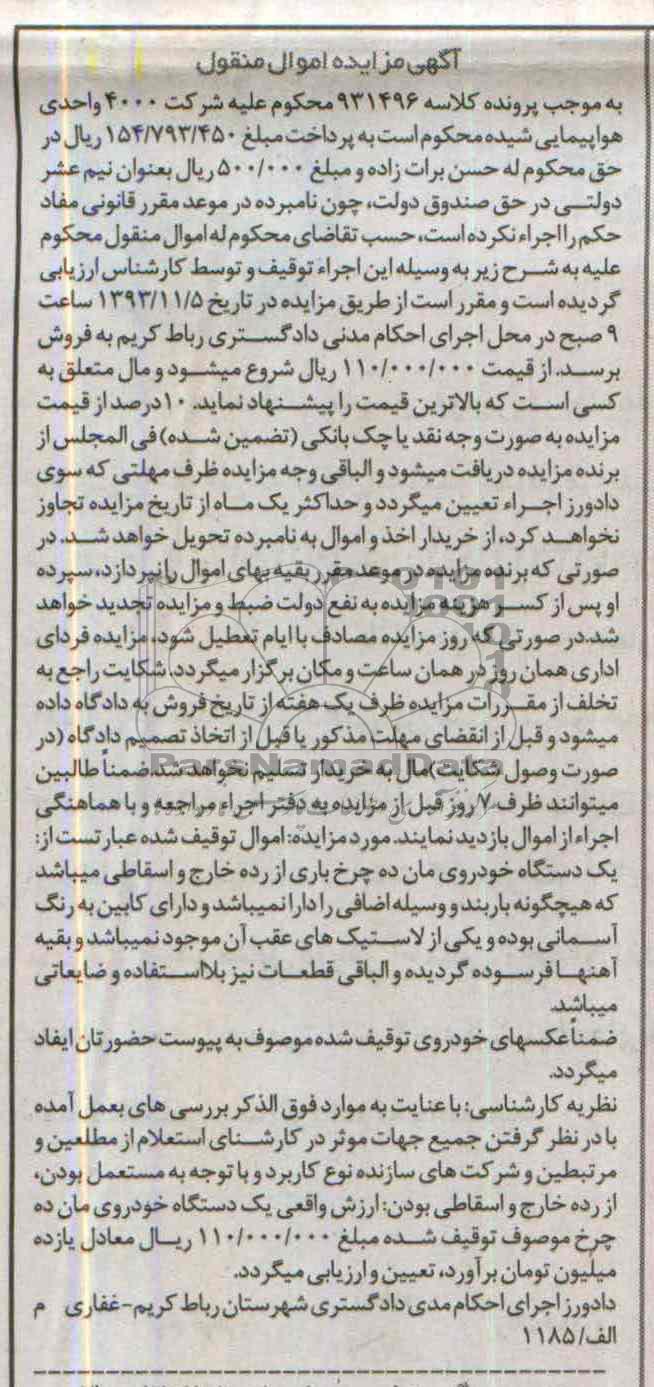 آگهی مزایده اموال منقول
به موجب پرونده کلاسه ۹۳۱۴۹۶ محکوم علیه شرکت ۴۰۰۰ واحدی
هواپیمایی شیده محکوم است به پرداخت مبلغ ۱۵۴/۷۹۳/۴۵۰ ریال در
حق محکوم له حسن برات زاده و مبلغ ۵۰۰/۰۰۰ ریال بعنوان نیم عشر
دولتی در حق صندوق دولت، چون نامبرده در موعد مقرر قانونی مفاد
حکم را اجراء نکرده است، حسب تقاضای محکوم له اموال منقول محکوم
علیه به شرح زیر به وسیله این اجراء توقیف و توسط کارشناس ارزیابی
گردیده است و مقرر است از طریق مزایده در تاریخ ۱۳۹۳/۱۱/۵ ساعت
۹ صبح در محل اجرای احکام مدنی دادگستری رباط کریم به فروش
برسد. از قیمت ۱۱۰/۰۰۰/۰۰۰ ریال شروع میشود و مال متعلق به
کسی است که بالاترین قیمت را پیشنهاد نماید. ۱۰درصد از قیمت
مزایده به صورت وجه نقد یا چک بانکی (تضمین شده) فی المجلس از
برنده مزایده دریافت میشود و الباقی وجه مزایده ظرف مهلتی که سوی
دادورز اجراء تعیین میگردد و حداکثر یک ماه از تاریخ مزایده تجاوز
نخواهد کرد، از خریدار اخذ و اموال به نامبرده تحویل خواهد شد. در
صورتی که برنده مزایده در موعد مقرر بقیه بهای اموال را نپردازد، سپرده
او پس از کسر هزینه مزایده به نفع دولت ضبط و مزایده تجدید خواهد
شد.در صورتی که روز مزایده مصادف با ایام تعطیل شود، مزایده فردای
اداری همان روز در همان ساعت و مکان برگزار میگردد. شکایت راجع به
تخلف از مقررات مزایده ظرف یک هفته از تاریخ فروش به دادگاه داده
میشود و قبل از انقضای مهلت مذکور یا قبل از اتخاذ تصمیم دادگاه (در
صورت وصول شکایت)مال به خریدار تسلیم نخواهد شد.ضمناً طالبین
ParsNamadData
میتوانند ظرف ۷ روز قبل از مزایده به دفتر اجراء مراجعه و با هماهنگی
اجراء از اموال بازدید نمایند. مورد مزایده: اموال توقیف شده عبارتست از:
یک دستگاه خودروی مان ده چرخ باری از رده خارج و اسقاطی میباشد
که هیچگونه باربند و وسیله اضافی را دارا نمیباشد و دارای کابین به رنگ
آسمانی بوده و یکی از لاستیک های عقب آن موجود نمیباشد و بقیه
آهنها فرسوده گردیده و الباقی قطعات نیز بلااستفاده و ضایعاتی
میباشد.
ضمناً عکسهای خودروی توقیف شده موصوف به پیوست حضورتان ایفاد
میگردد.
نظریه کارشناسی: با عنایت به موارد فوق الذکر بررسی های بعمل آمده
با در نظر گرفتن جمیع جهات موثر در کارشنای استعلام از مطلعین و
مرتبطین و شرکت های سازنده نوع کاربرد و با توجه به مستعمل بودن،
از رده خارج و اسقاطی بودن: ارزش واقعی یک دستگاه خودروی مان ده
چرخ موصوف توقیف شده مبلغ ۱۱۰/۰۰۰/۰۰۰ ریال معادل یازده
میلیون تومان برآورد، تعیین و ارزیابی میگردد.
دادورز اجرای احکام مدی دادگستری شهرستان رباط کریم-غفاری م
الف/۱۱۸۵